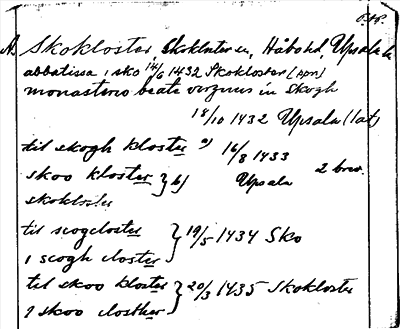 A. Skokloster, Skokloster sn, Håbo hd, Upsala l.
abbatissa i sko 14/6 1432 Skokloster (apr)
monasterio beate virginis in Skogh
18/10 1432 Upsala (lat)
til skogh kloster a) 16/8 1433
skoo kloster } b) Upsala 2 brev.
skokloster
til scogcloster } 19/5 1434 Sko
i scogh closter
til skoo kloster } 20/3 1435 Skokloster
i skoo closther